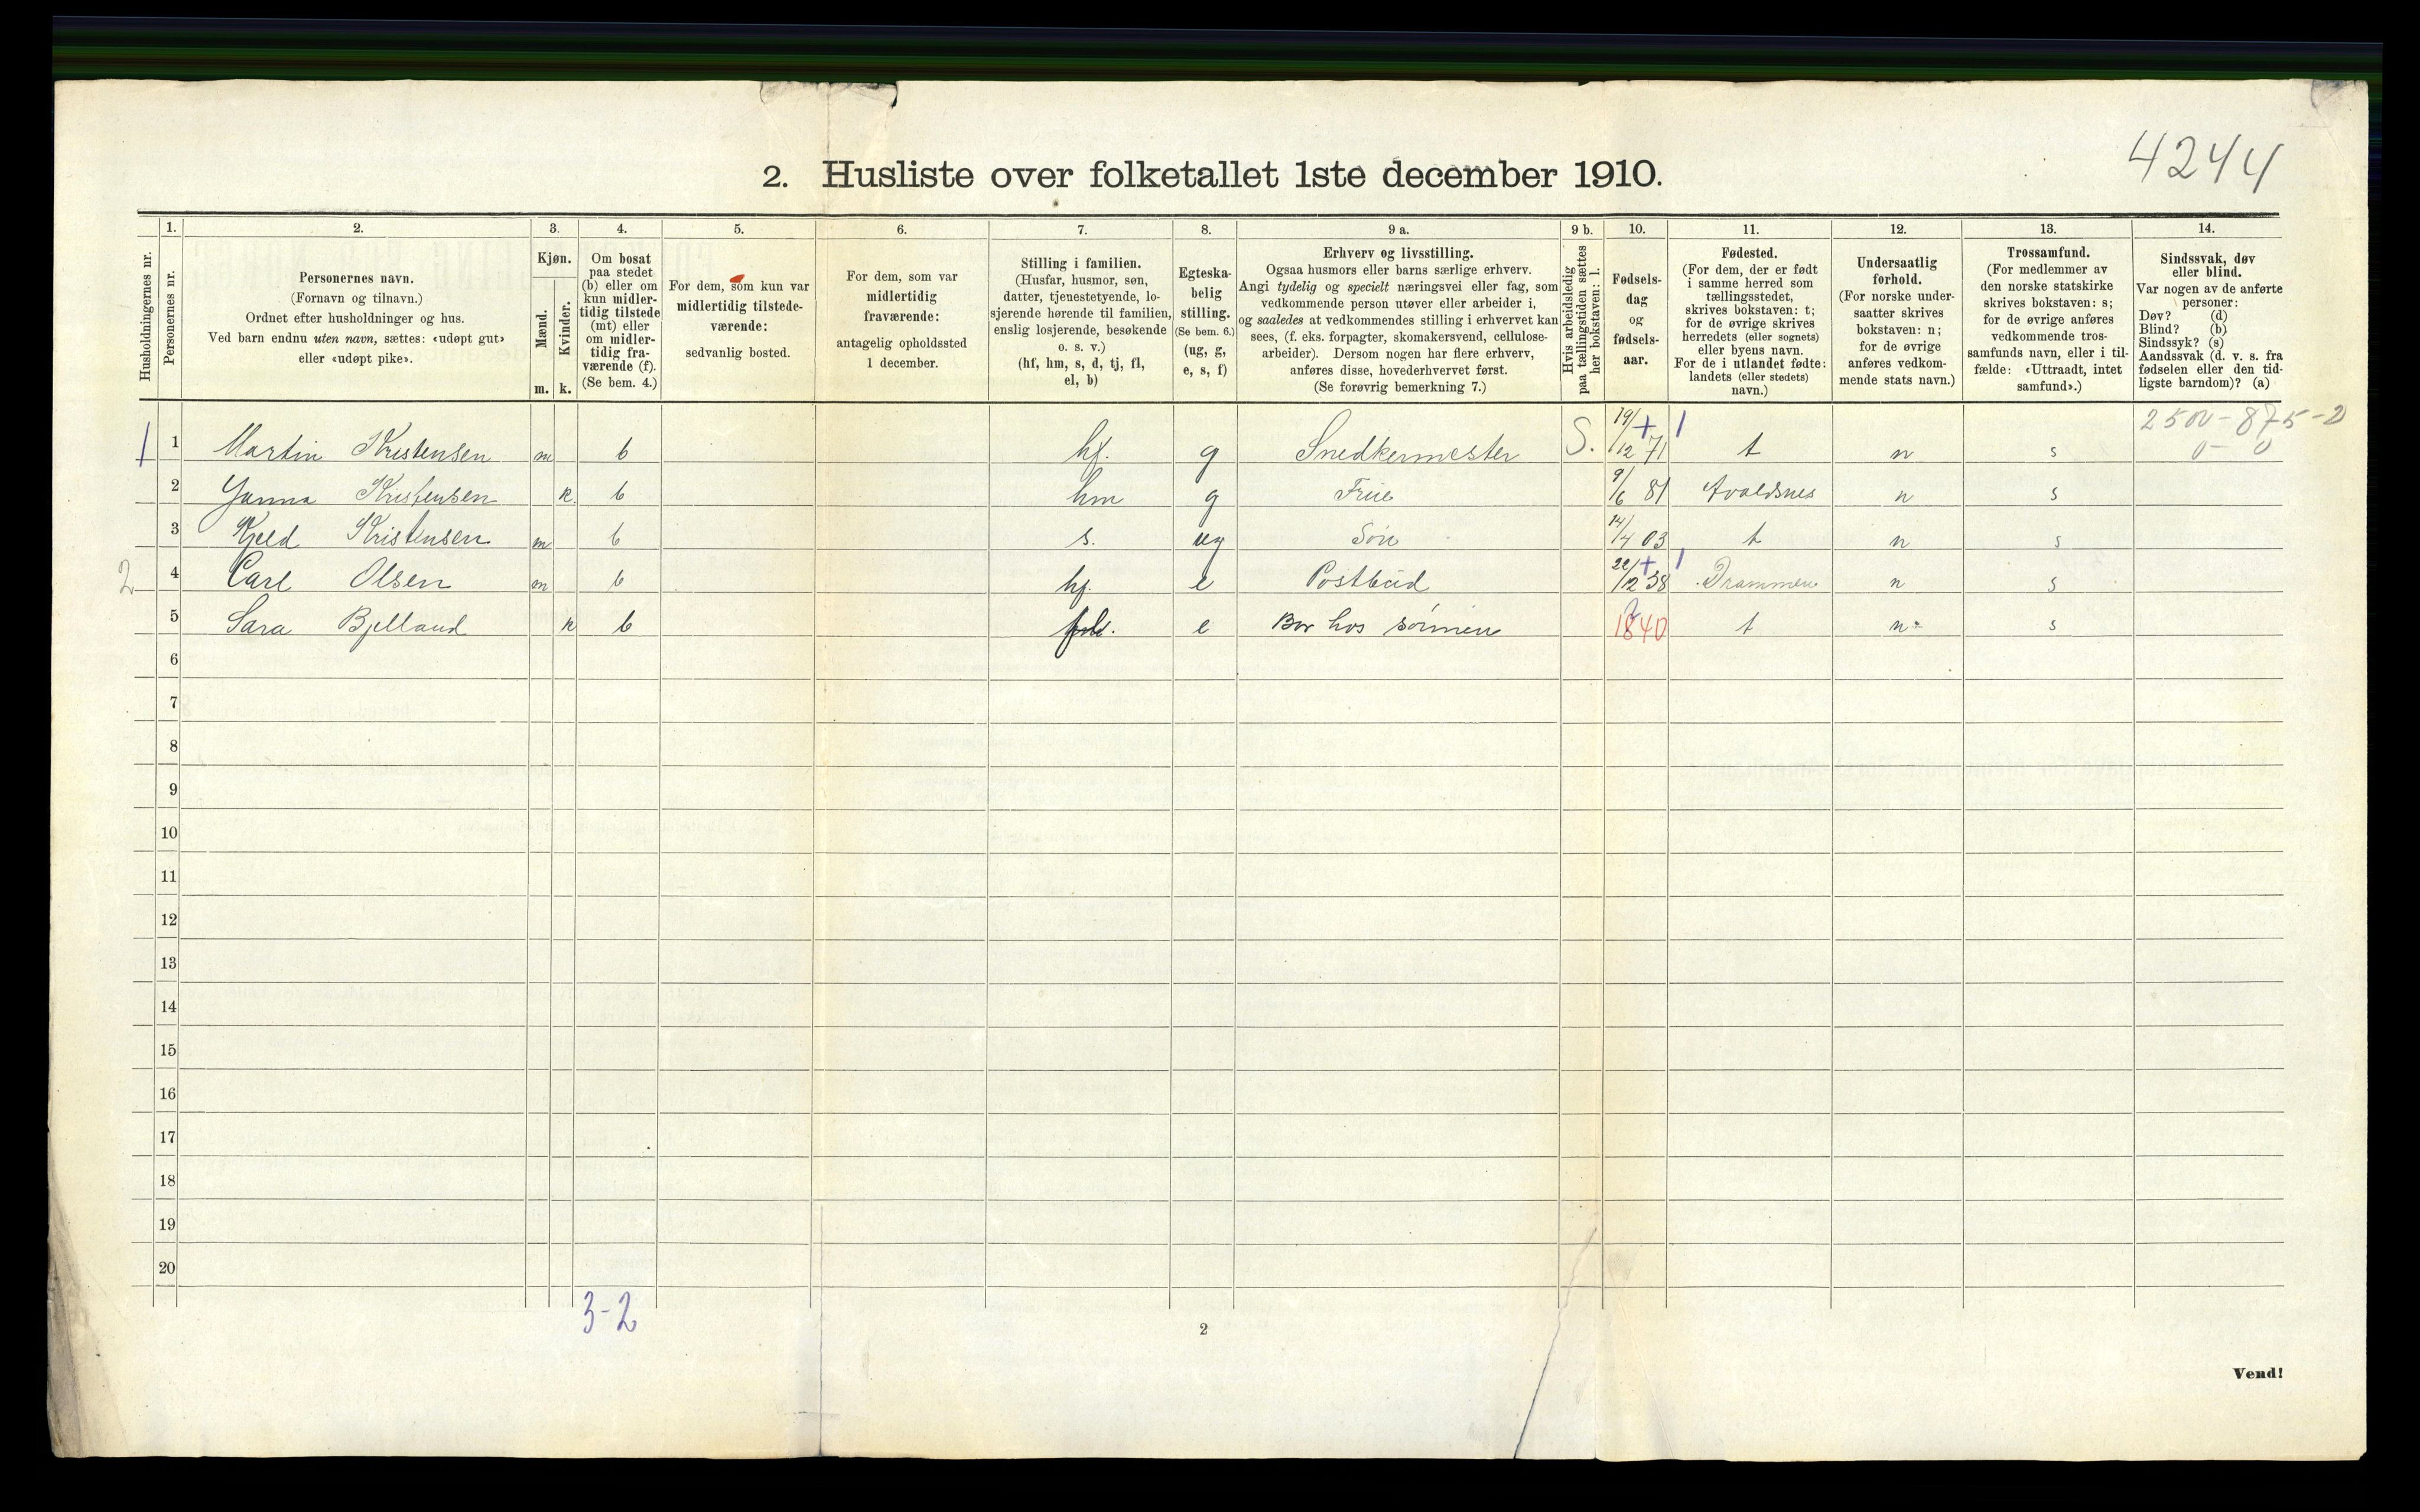 4244
2. Husliste over folketallet 1ste december 1910.
Husholdningernes nr.
1.
Personernes nr.
2.
Personernes navn.
(Fornavn og tilnavn.)
Ordnet efter husholdninger og hus.
Ved barn endnu uten navn, sættes: «udøpt gut»
eller «udøpt pike».
3.
Kjøn.
Mænd.
Kvinder.
m. k.
4.
Om bosat
paa stedet
(b) eller om
kun midler-
tidig tilstede
(mt) eller
om midler-
tidig fra-
værende (f).
(Se bem. 4.)
5.
For dem, som kun var
midlertidig tilstede-
værende:
sedvanlig bosted.
6.
For dem, som var
midlertidig
fraværende:
antagelig opholdssted
1 december.
7.
Stilling i familien.
(Husfar, husmor, søn,
datter, tjenestetyende, lo-
sjerende hørende til familien,
enslig losjerende, besøkende
o. s. v.)
(hf, hm, s, d, tj, fl,
el, b)
8.
Egteska-
belig
stilling.
(Se bem. 6.)
(ug, g,
e, s, f)
9 a.
Erhverv og livsstilling.
Ogsaa husmors eller barns særlige erhverv.
Angi tydelig og specielt næringsvei eller fag, som
vedkommende person utøver eller arbeider i,
og saaledes at vedkommendes stilling i erhvervet kan
sees, (f. eks. forpagter, skomakersvend, cellulose-
arbeider). Dersom nogen har flere erhverv,
anføres disse, hovederhvervet først.
(Se forøvrig bemerkning 7.)
9 b.
Hvis arbeidsledig
paa tællingstiden sættes
her bokstaven: l.
10.
Fødsels-
dag
og
fødsels-
aar.
11.
Fødested.
(For dem, der er født
i samme herred som
tællingsstedet,
skrives bokstaven: t;
for de øvrige skrives
herredets (eller sognets)
eller byens navn.
For de i utlandet fødte:
landets (eller stedets)
navn.)
12.
Undersaatlig
forhold.
(For norske under-
saatter skrives
bokstaven: n;
for de øvrige
anføres vedkom-
mende stats navn.)
13.
Trossamfund.
(For medlemmer av
den norske statskirke
skrives bokstaven: s;
for de øvrige anføres
vedkommende tros-
samfunds navn, eller i til-
fælde: «Uttraadt, intet
samfund».)
14.
Sindssvak, døv
eller blind.
Var nogen av de anførte
personer:
Døv? (d)
Blind? (b)
Sindssyk? (s)
Aandssvak (d. v. s. fra
fødselen eller den tid-
ligste barndom)? (a)
2500-875-2
0- 0
1 1 Martin Kristensen m b hf. g Snedkermester S. 19/12 71 + 1 t n s
2 Janna Kristensen k. b hm g Frue 9/6 81 Avaldsnes n s
3 Kjeld Kristensen m b s. ug Søn 14/4 03 t n s
2 4 Carl Olsen m b hf. e Postbud 22/12 38 + 1 Drammen n s
5 Sara Bjelland k b e Bor hos sønnen 1840 t n s
6
7
8
9
10
11
12
13
14
15
16
17
18
19
20
3-2
2
Vend!